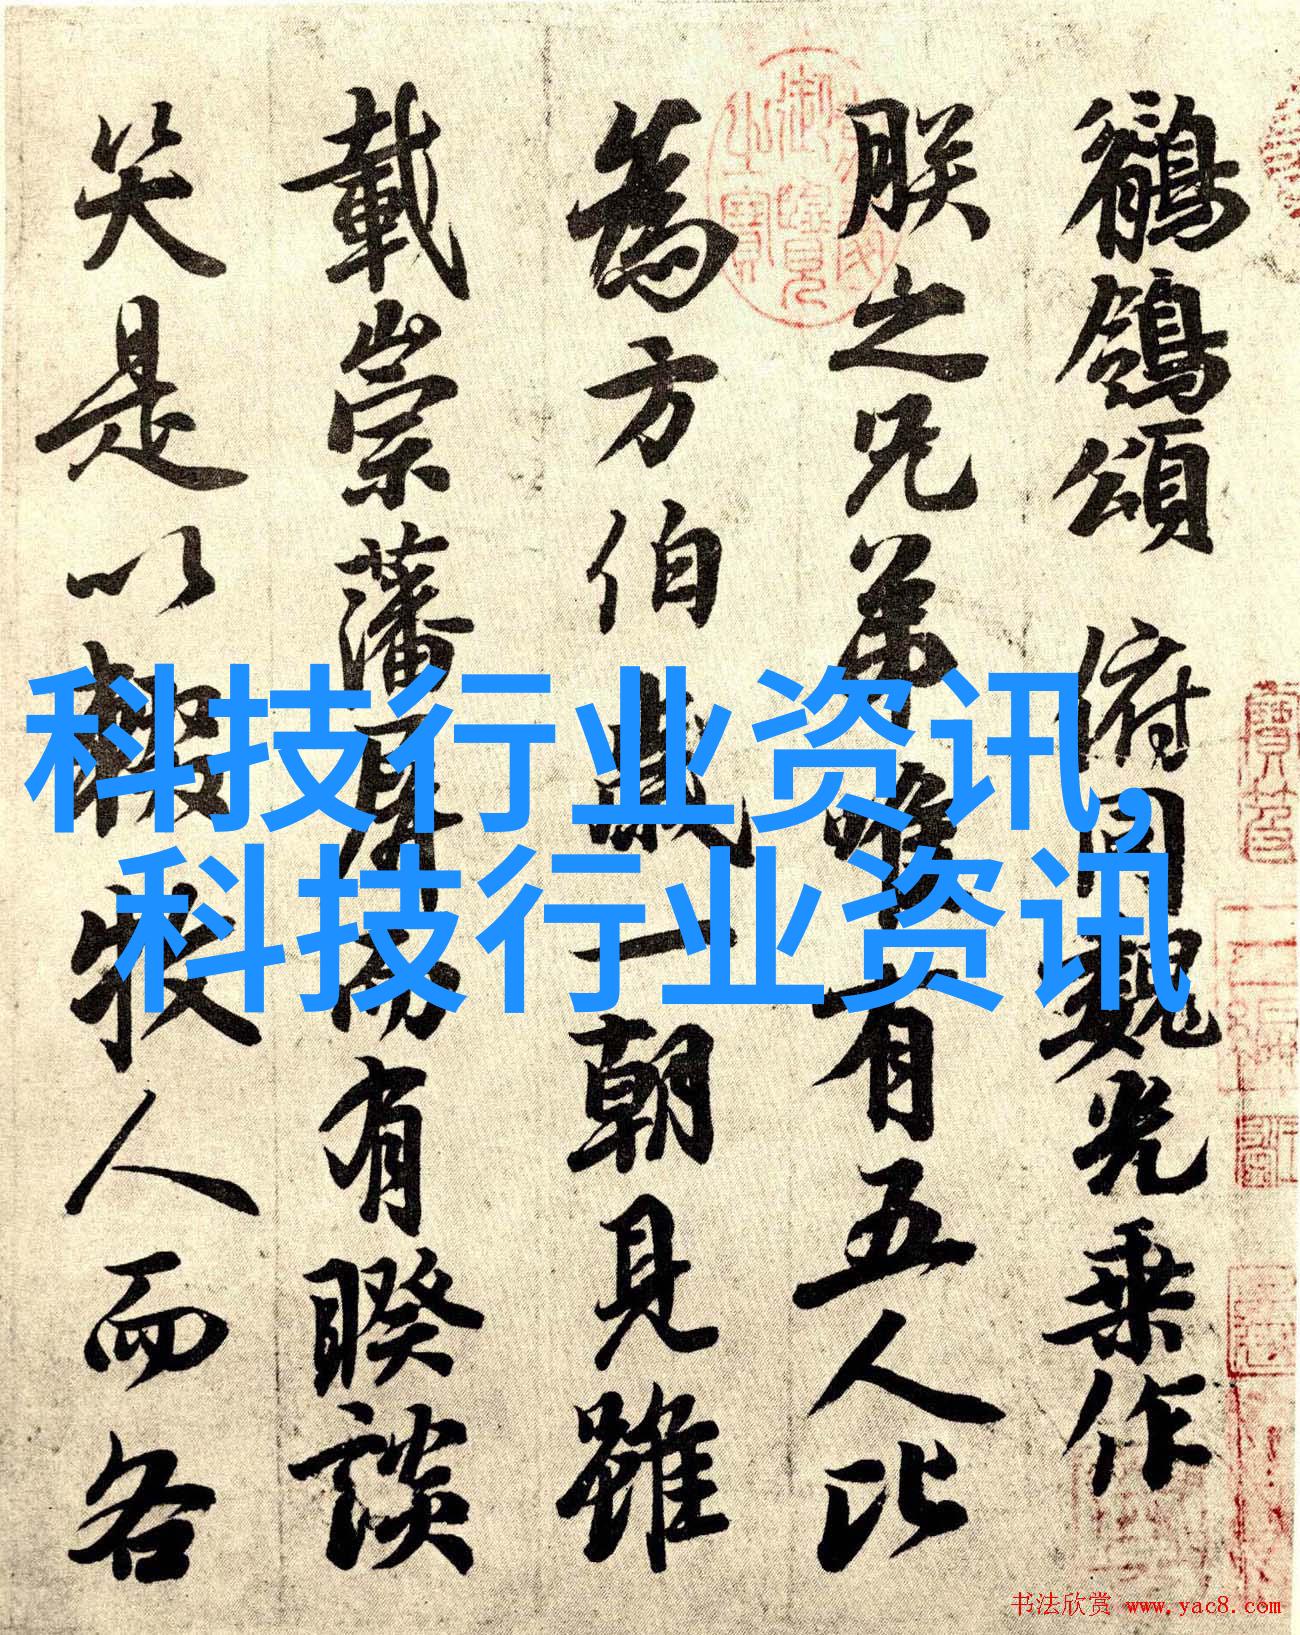 鶺鴒頌 俯同魏光乘作
朕之兄弟唯有五人比
為方伯歲一朝見雖
載崇藩屏而有睽談
笑是以輟牧人而各
科技行业资讯,
科技行业资讯
书法欣赏 www.yac8.com